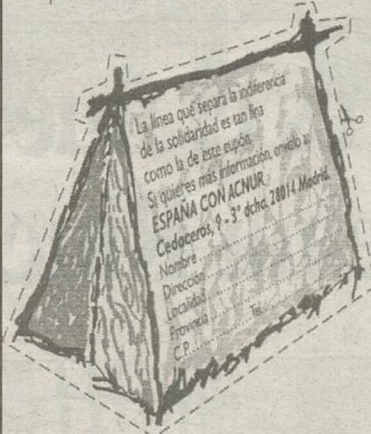 La línea que separa la indiferencia
de la solidaridad es tan fina
como la de este cupón.
Si quieres más información, envíalo a:
ESPAÑA CON ACNUR
Cedaceros, 9 - 3° dcha. 28014 Madrid.
Nombre
Dirección
Localidad
Provincia Tel.
C.P.